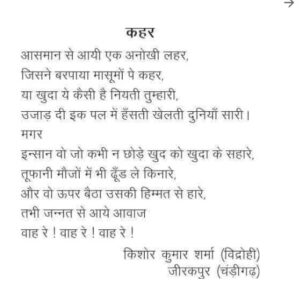 कहर
आसमान से आयी एक अनोखी लहर,
जिसने बरपाया मासूमों पे कहर,
या खुदा ये कैसी है नियती तुम्हारी,
उजाड़ दी इक पल में हँसती खेलती दुनियाँ सारी।
मगर
इन्सान वो जो कभी न छोड़े खुद को खुदा के सहारे,
तूफानी मौजों में भी ढूँड ले किनारे,
और वो ऊपर बैठा उसकी हिम्मत से हारे,
तभी जन्नत से आये आवाज
वाह रे ! वाह रे ! वाह रे !
किशोर कुमार शर्मा (विद्रोही)
जीरकपुर (चंड़ीगढ़)